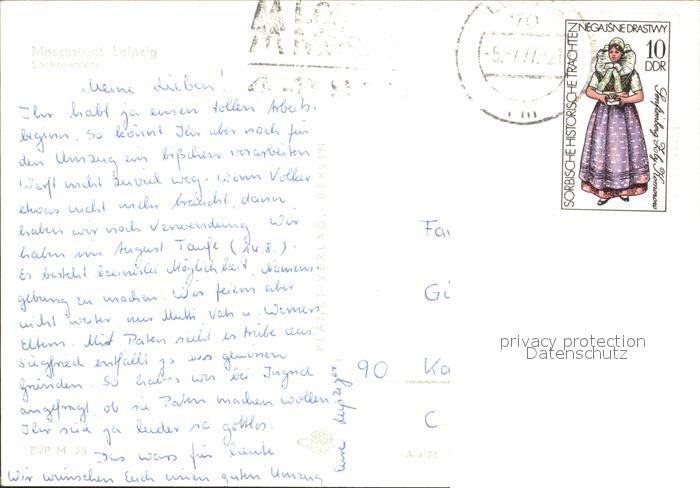 Messestadt Leipzig
Sachsenplatz
Meine Lieben!
Ihr habt ja einen tollen Arbeits-
beginn. So könnt Ihr aber noch für
den Umzug ein bißchen vorarbeiten
Werft nicht zuviel weg. Wenn Volker
etwas nicht mehr braucht, dann
haben wir noch Verwendung. Wir
haben im August Taufe (14.8.).
Es besteht keinerlei Möglichkeit, Namens-
gebung zu machen. Wir feiern aber
nicht weiter nur Mutti Vati u. Werners
Eltern. Mit Paten sieht es trübe aus.
Siegfried entfällt ja aus gewissen
Gründen. So haben wir bei Ingrid
angefragt, ob sie Paten machen wollen.
Ihr seid ja leider so gottlos.
Das wars für heute
Wir wünschen Euch einen guten Umzug
Eure Leipziger
EVP M -,25
PLANET-VERLAG, BERLIN
A 4/73
SORBISCHE HISTORISCHE TRACHTEN
NĚGAJŠNE DRASTWY
10
DDR
70
-5.-7.77.-21
Fa
Gü
90 Ka
C
privacy protection
Datenschutz